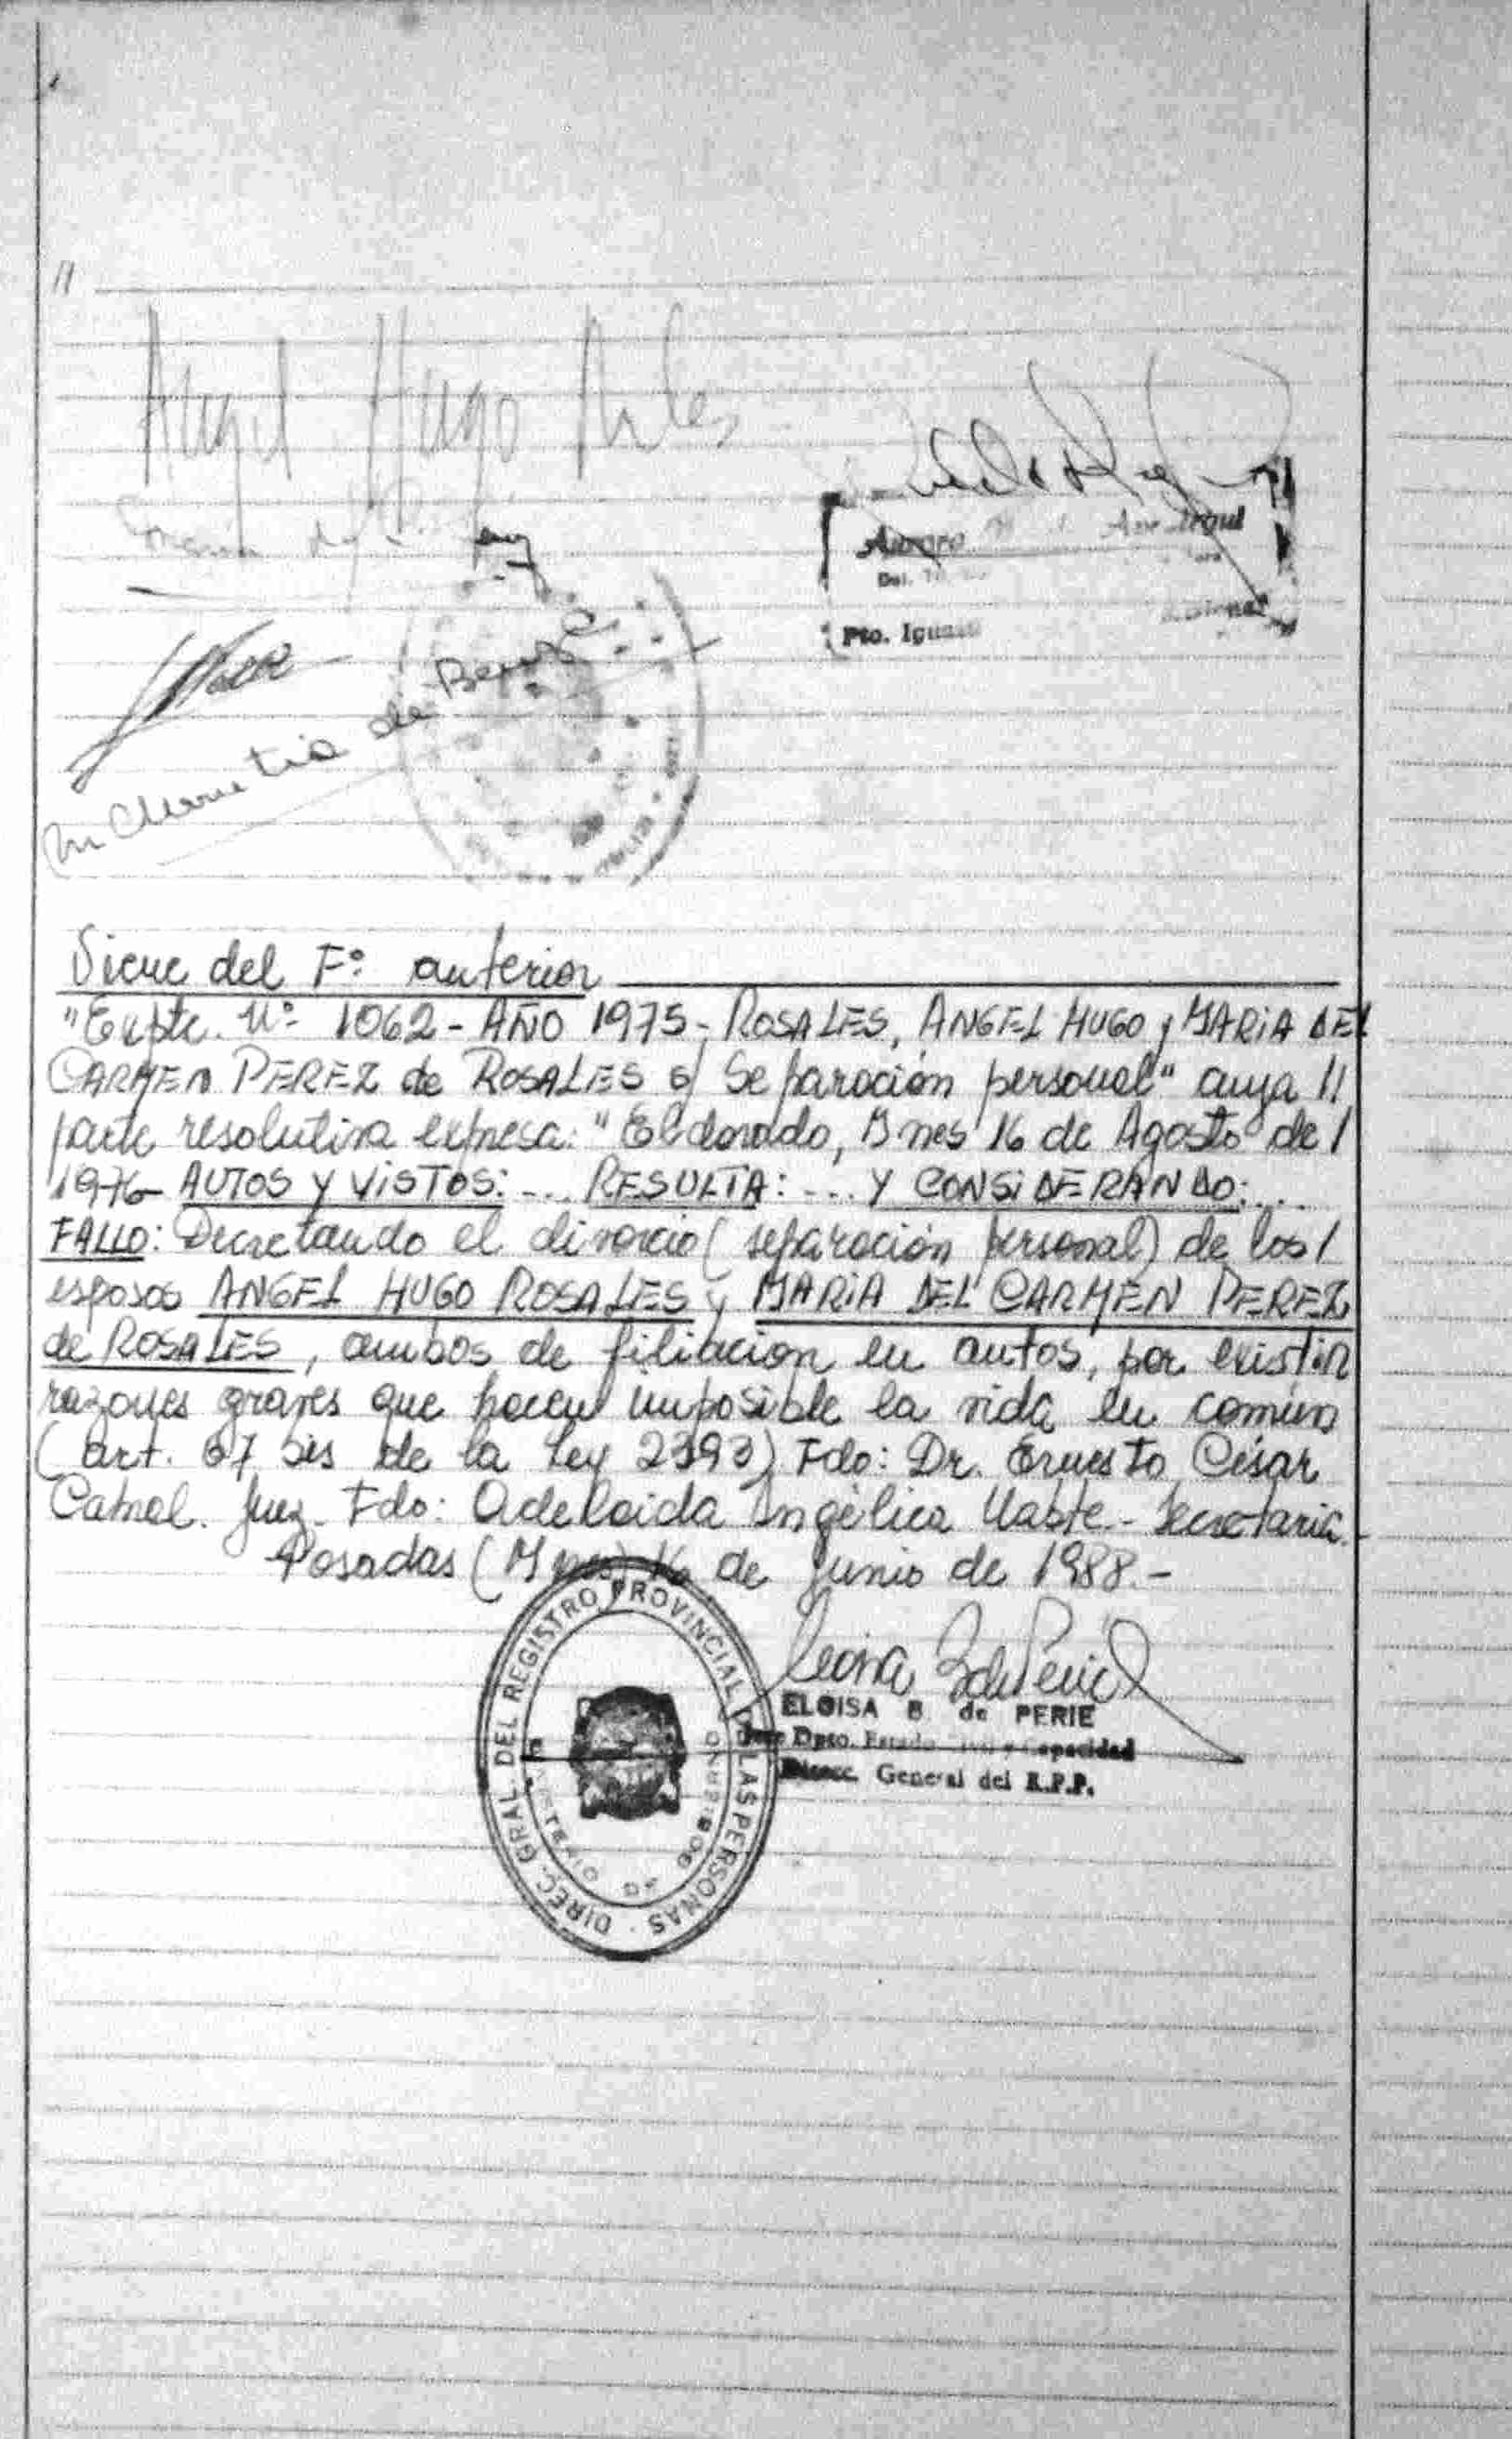 //
Angel Hugo Rosales
Pto. Iguazú
Sicue del Fº: anterior
"Expte. Nº 1062 - AÑO 1975 - ROSALES, ANGEL HUGO y MARIA DEL
CARMEN PEREZ de ROSALES s/ Separación personal" cuya //
parte resolutiva expresa: "Eldorado, Mnes 16 de Agosto de /
1976 - AUTOS Y VISTOS: ... RESULTA: ... Y CONSIDERANDO: ...
FALLO: Decretando el divorcio (separación personal) de los /
esposos ANGEL HUGO ROSALES y MARIA DEL CARMEN PEREZ
de ROSALES, ambos de filiación en autos, por existir
razones graves que hacen imposible la vida en común
(art. 67 bis de la Ley 2393) Fdo: Dr. Ernesto César
Cabral. Juez. Fdo: Adelaida Angélica - Secretaria.
Posadas (Mnes) 16 de Junio de 1988.-
DIREC. GRAL. DEL REGISTRO PROVINCIAL DE LAS PERSONAS
MINISTERIO DE GOBIERNO
ELOISA B. de PERIE
Jefe Dpto. Estado Civil y Capacidad
Direcc. General del R.P.P.